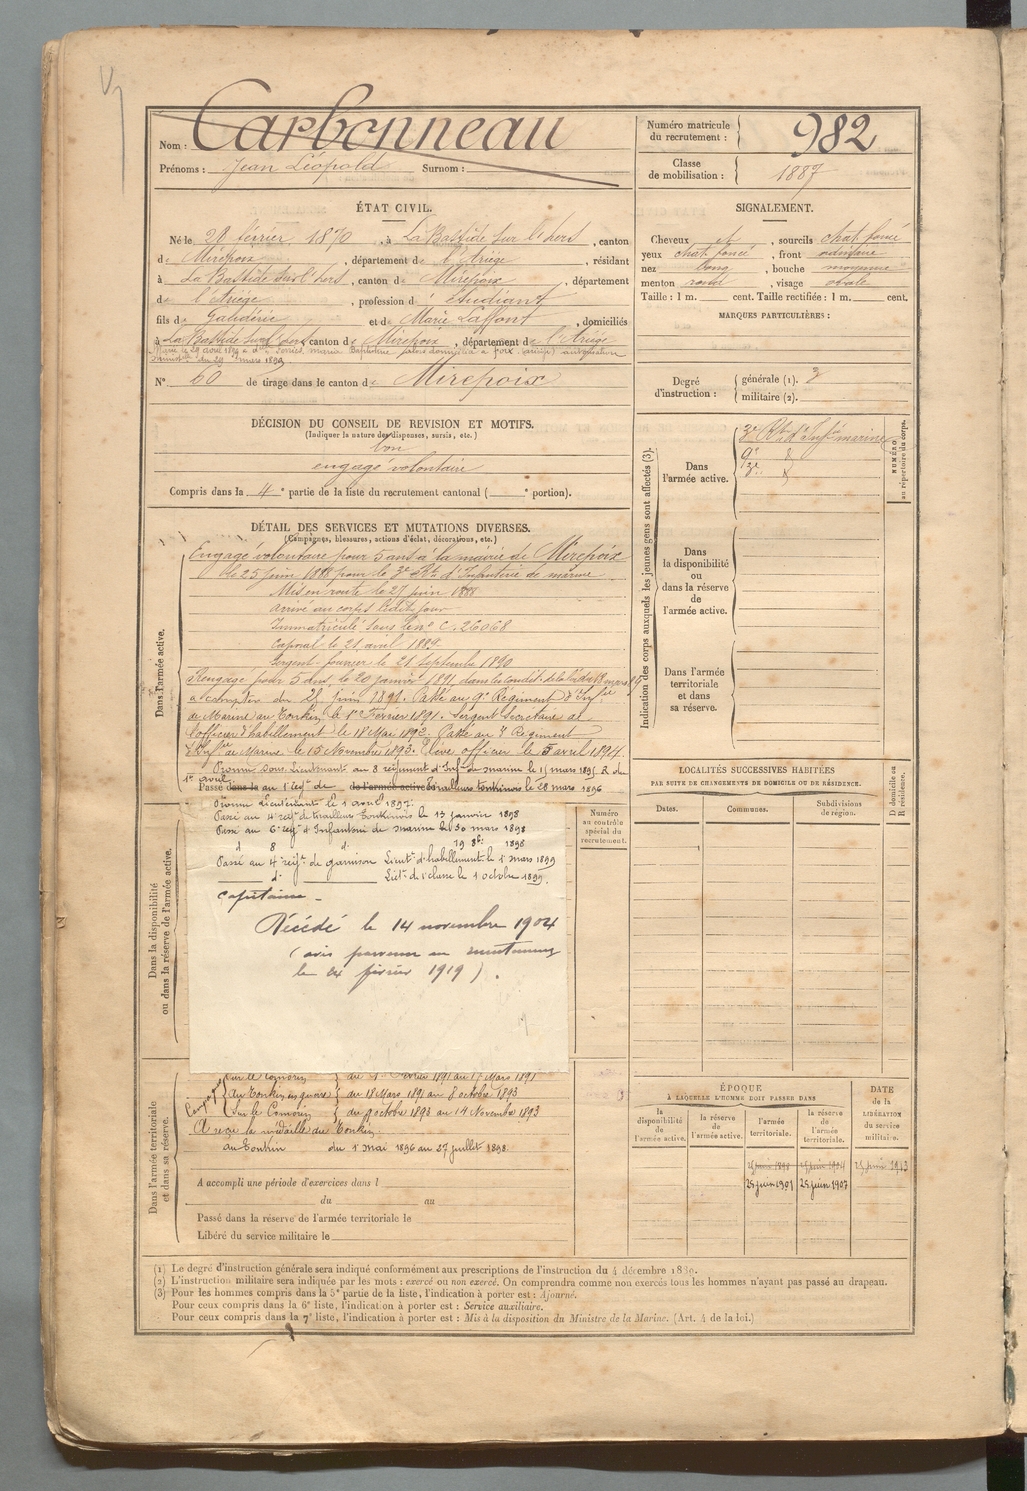 Nom : Carbonneau
Prénoms : Jean Léopold Surnom :
Numéro matricule du recrutement : 982
Classe de mobilisation : 1887
ÉTAT CIVIL.
Né le 28 février 1870, à La Bastide sur l'hers, canton
de Mirepoix, département de l'Ariège, résidant
à La Bastide sur l'hers, canton de Mirepoix, département
de l'Ariège, profession d' étudiant
fils de Galdérie et de Marie Laffont, domiciliés
à La Bastide sur l'hers canton de Mirepoix, département de l'Ariège
Marié le 28 août 1899 à maria Baptistine domiciliée à Foix (Ariège) autorisation
du 29 mars 1899
N° 60 de tirage dans le canton de Mirepoix
SIGNALEMENT.
Cheveux et, sourcils chat. foncé
yeux chat. foncé, front ordinaire
nez long, bouche moyenne
menton rond, visage ovale
Taille : 1 m. cent. Taille rectifiée : 1 m. cent.
MARQUES PARTICULIÈRES :
Degré d'instruction : générale (1). 3
militaire (2).
DÉCISION DU CONSEIL DE REVISION ET MOTIFS.
(Indiquer la nature des dispenses, sursis, etc.)
bon
engagé volontaire
Compris dans la 4e partie de la liste du recrutement cantonal ( e portion).
DÉTAIL DES SERVICES ET MUTATIONS DIVERSES.
(Campagnes, blessures, actions d'éclat, décorations, etc.)
Dans l'armée active.
Engagé volontaire pour 5 ans à la mairie de Mirepoix
le 25 juin 1888 pour le 3e Rt d'Infanterie de marine
Mis en route le 27 juin 1888
arrivé au corps ledit jour
Immatriculé sous le n° C. 26068
Caporal le 21 avril 1889
Sergent-fourrier le 21 Septembre 1890
Rengagé pour 5 ans, le 20 janvier 1891, dans les condit. de la loi du 18 mars 89
à compter du 25 juin 1891. Passé au 9e Régiment d'Infie
de Marine au Tonkin le 1er Février 1891. Sergent Secrétaire de
l'officier d'habillement le 18 Mai 1892. Passé au 3e Régiment
d'Infie de Marine le 15 Novembre 1893. Elève officier le 5 avril 1894.
Promu Sous-Lieutenant au 8 régiment d'Infie de marine le 15 mars 1895 R du
1er avril
Passé dans la au 1er régt de de l'armée active tirailleurs tonkinois le 28 mars 1896
Promu Lieutenant le 1 avril 1897.
Passé au 4e régt de tirailleurs Tonkinois le 13 janvier 1898
Passé au 6e régt d'Infanterie de marine le 30 mars 1898
d 8 d 19 8bre 1898
Passé au 4 régt de garnison Lieutt d'habillement le 1 mars 1899
d° Lieutt de 1e classe le 1 octobre 1899.
Capitaine -
Décédé le 14 novembre 1904
(avis parvenu au
le 24 février 1919).
Dans la disponibilité
ou dans la réserve de l'armée active.
Numéro au contrôle spécial du recrutement.
Dans l'armée territoriale
et dans sa réserve.
Campagnes
Sur le Comorin du 1er Février 1891 au 17 Mars 1891
du Tonkin, en guerre du 18 Mars 1891 au 8 octobre 1893
Sur le Comorin du 9 octobre 1893 au 14 Novembre 1893
A reçu la médaille du Tonkin.
au Tonkin du 1er Mai 1896 au 27 juillet 1898.
A accompli une période d'exercices dans l
du au
Passé dans la réserve de l'armée territoriale le
Libéré du service militaire le
Indication des corps auxquels les jeunes gens sont affectés (3).
Dans l'armée active.
3e Rt d'Infie marine
9e
3e
NUMÉRO au répertoire du corps.
Dans la disponibilité ou dans la réserve de l'armée active.
Dans l'armée territoriale et dans sa réserve.
LOCALITÉS SUCCESSIVES HABITÉES
PAR SUITE DE CHANGEMENTS DE DOMICILE OU DE RÉSIDENCE.
Dates. Communes. Subdivisions de région. D domicile ou R résidence.
ÉPOQUE
À LAQUELLE L'HOMME DOIT PASSER DANS
la disponibilité de l'armée active. la réserve de l'armée active. l'armée territoriale. la réserve de l'armée territoriale.
DATE de la LIBÉRATION du service militaire.
25 juin 1898 25 juin 1904 25 juin 1913
25 juin 1901 25 juin 1907
(1) Le degré d'instruction générale sera indiqué conformément aux prescriptions de l'instruction du 4 décembre 1889.
(2) L'instruction militaire sera indiquée par les mots : exercé ou non exercé. On comprendra comme non exercés tous les hommes n'ayant pas passé au drapeau.
(3) Pour les hommes compris dans la 5e partie de la liste, l'indication à porter est : Ajourné.
Pour ceux compris dans la 6e liste, l'indication à porter est : Service auxiliaire.
Pour ceux compris dans la 7e liste, l'indication à porter est : Mis à la disposition du Ministre de la Marine. (Art. 4 de la loi.)